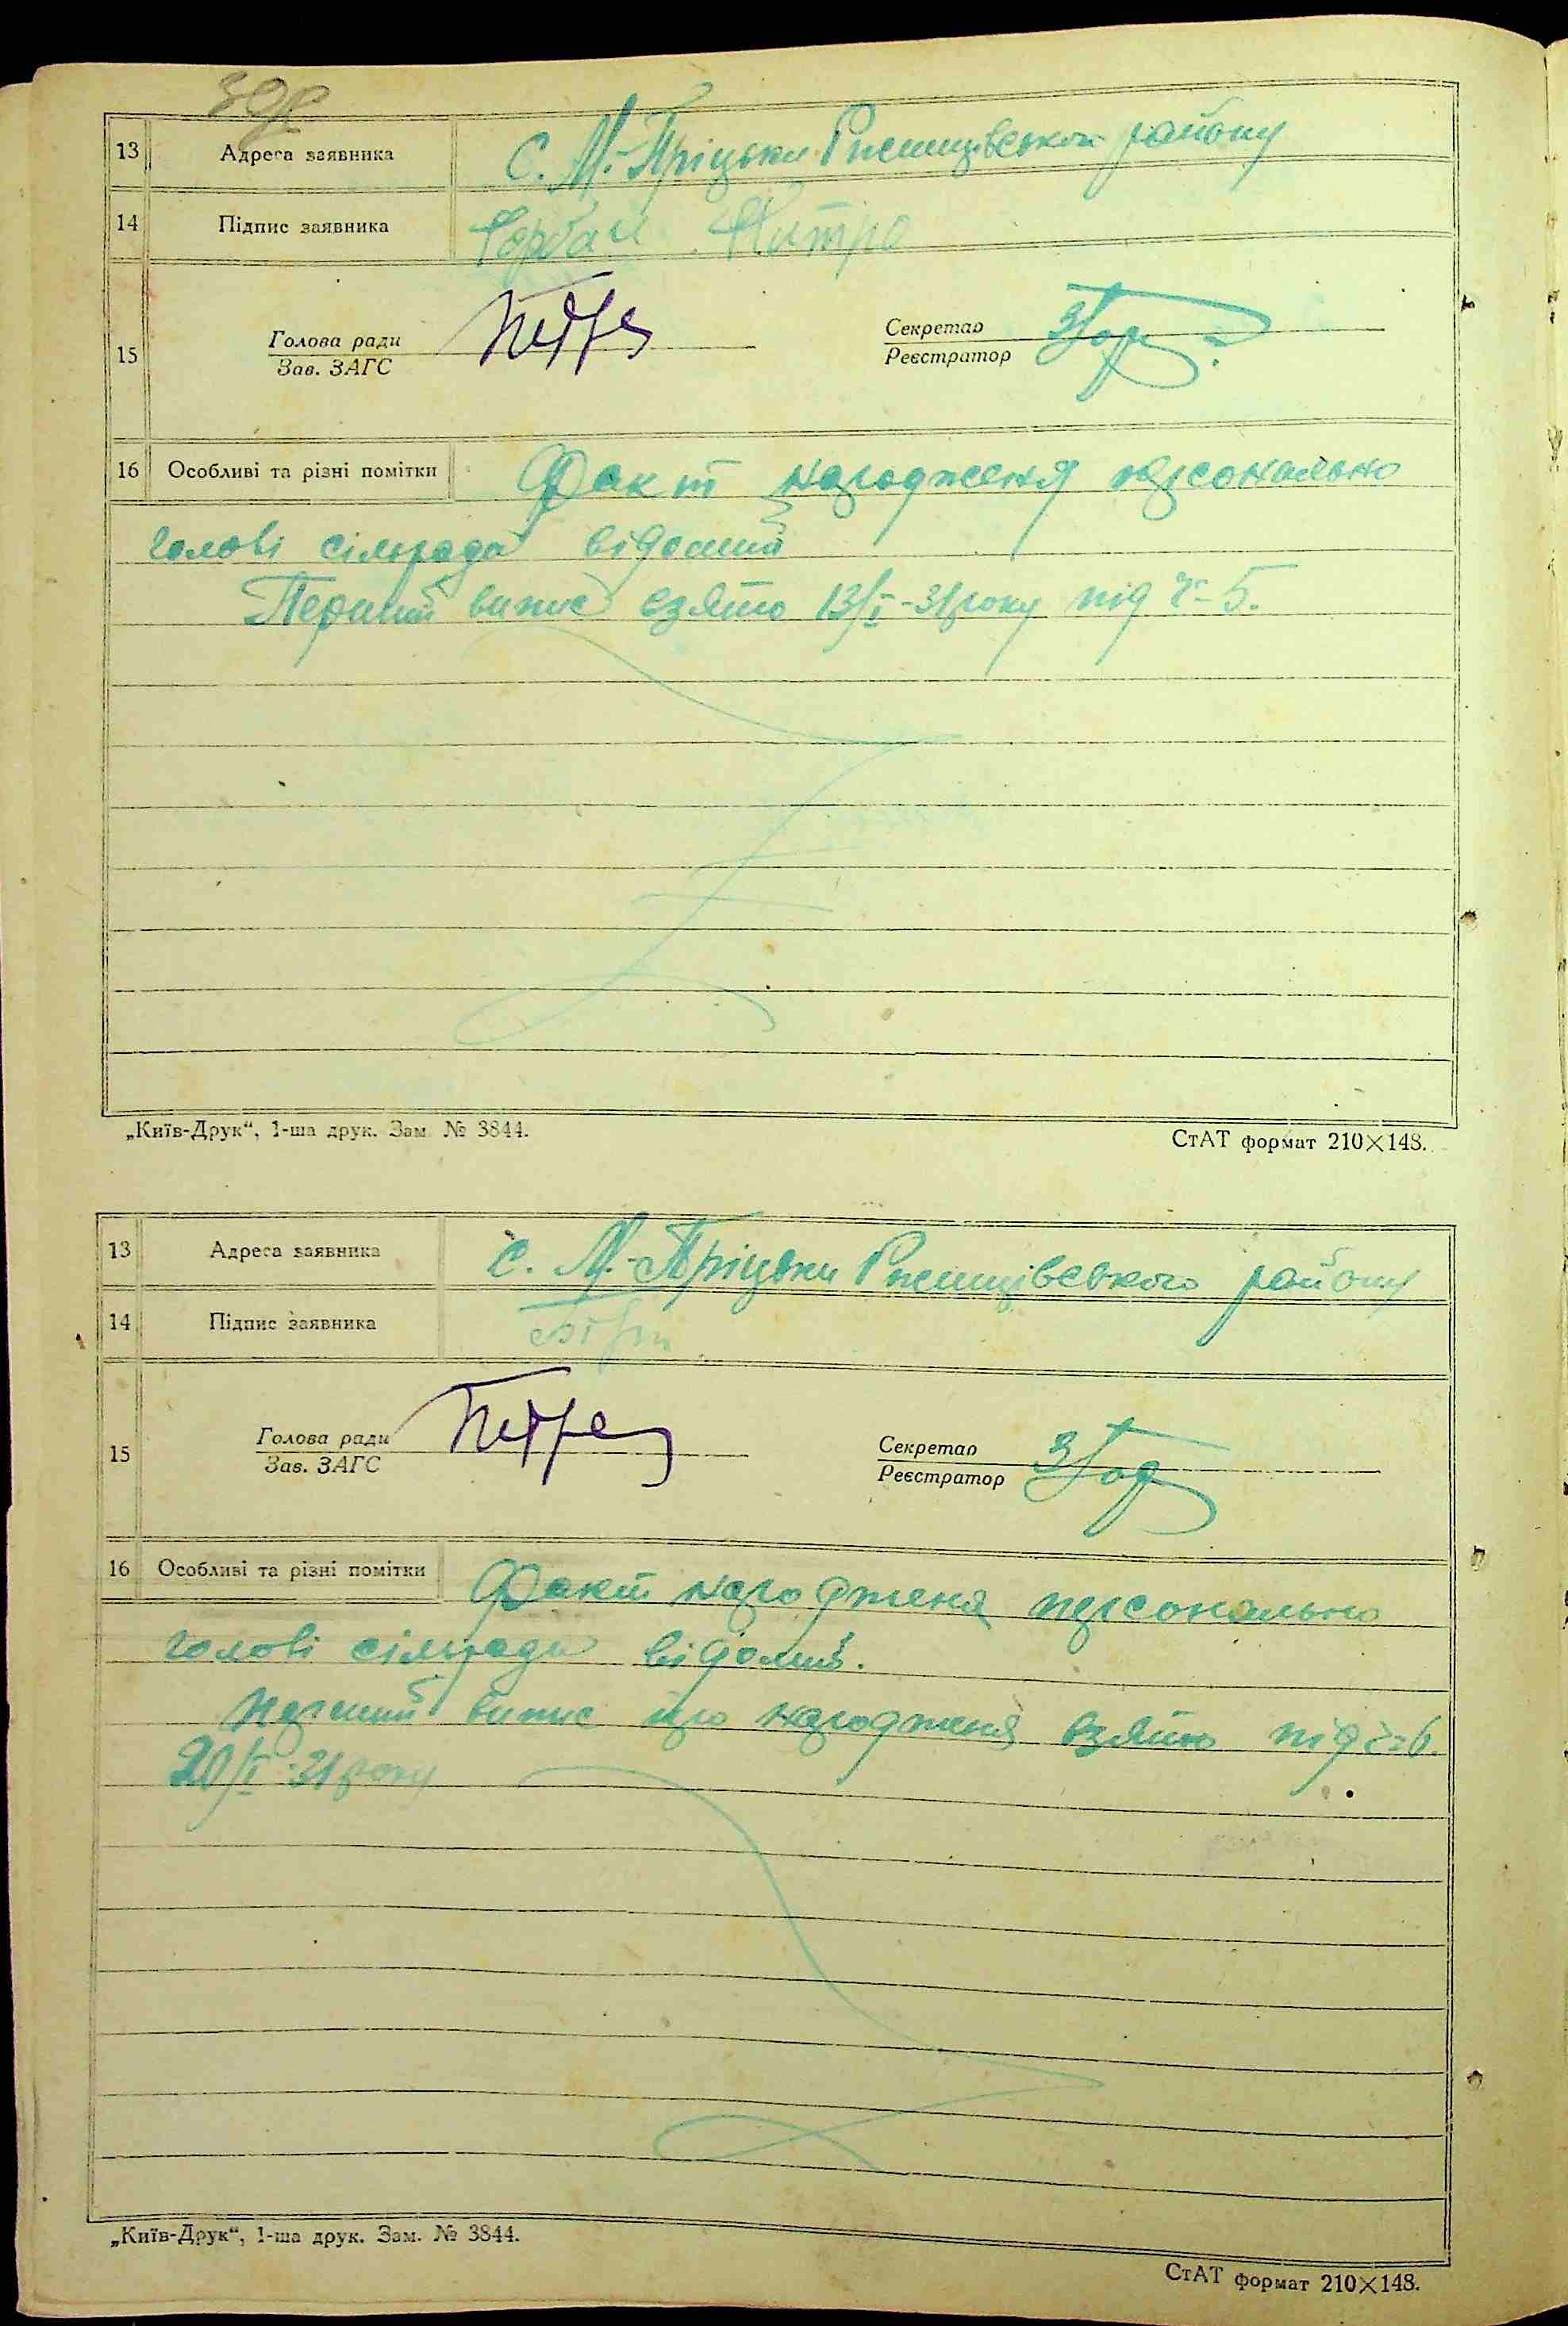 13 Адреса заявника С. М.-Пріцьки Ржищівського району
14 Підпис заявника Горбай Митро
15 Голова ради Секретар
Зав. ЗАГС Реєстратор
16 Особливі та різні помітки Факт народження персонально
голові сільради відомий
Перший випис взято 13/I-31 року під ч-5.
„Київ-Друк“, 1-ша друк. Зам. № 3844.
СтАТ формат 210×148.
13 Адреса заявника С. М.-Пріцьки Ржищівського району
14 Підпис заявника
15 Голова ради Секретар
Зав. ЗАГС Реєстратор
16 Особливі та різні помітки Факт народженя персонально
голові сільради відомий.
Перший випис про народженя взято під ч-6.
20/I-31 року
„Київ-Друк“, 1-ша друк. Зам. № 3844.
СтАТ формат 210×148.